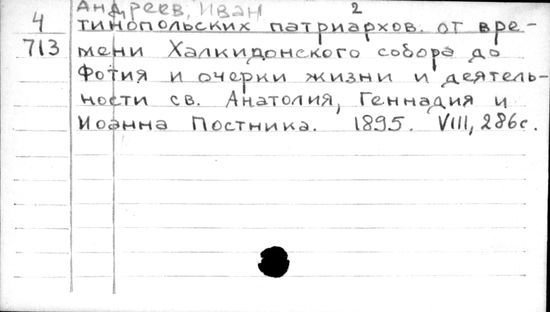 Андреев, Иван 2
4 тинопольских патриархов от вре-
713 мени Халкидонского собора до
Фотия и очерки жизни и деятель-
ности св. Анатолия, Геннадия и
Иоанна Постника. 1895. VIII, 286с.